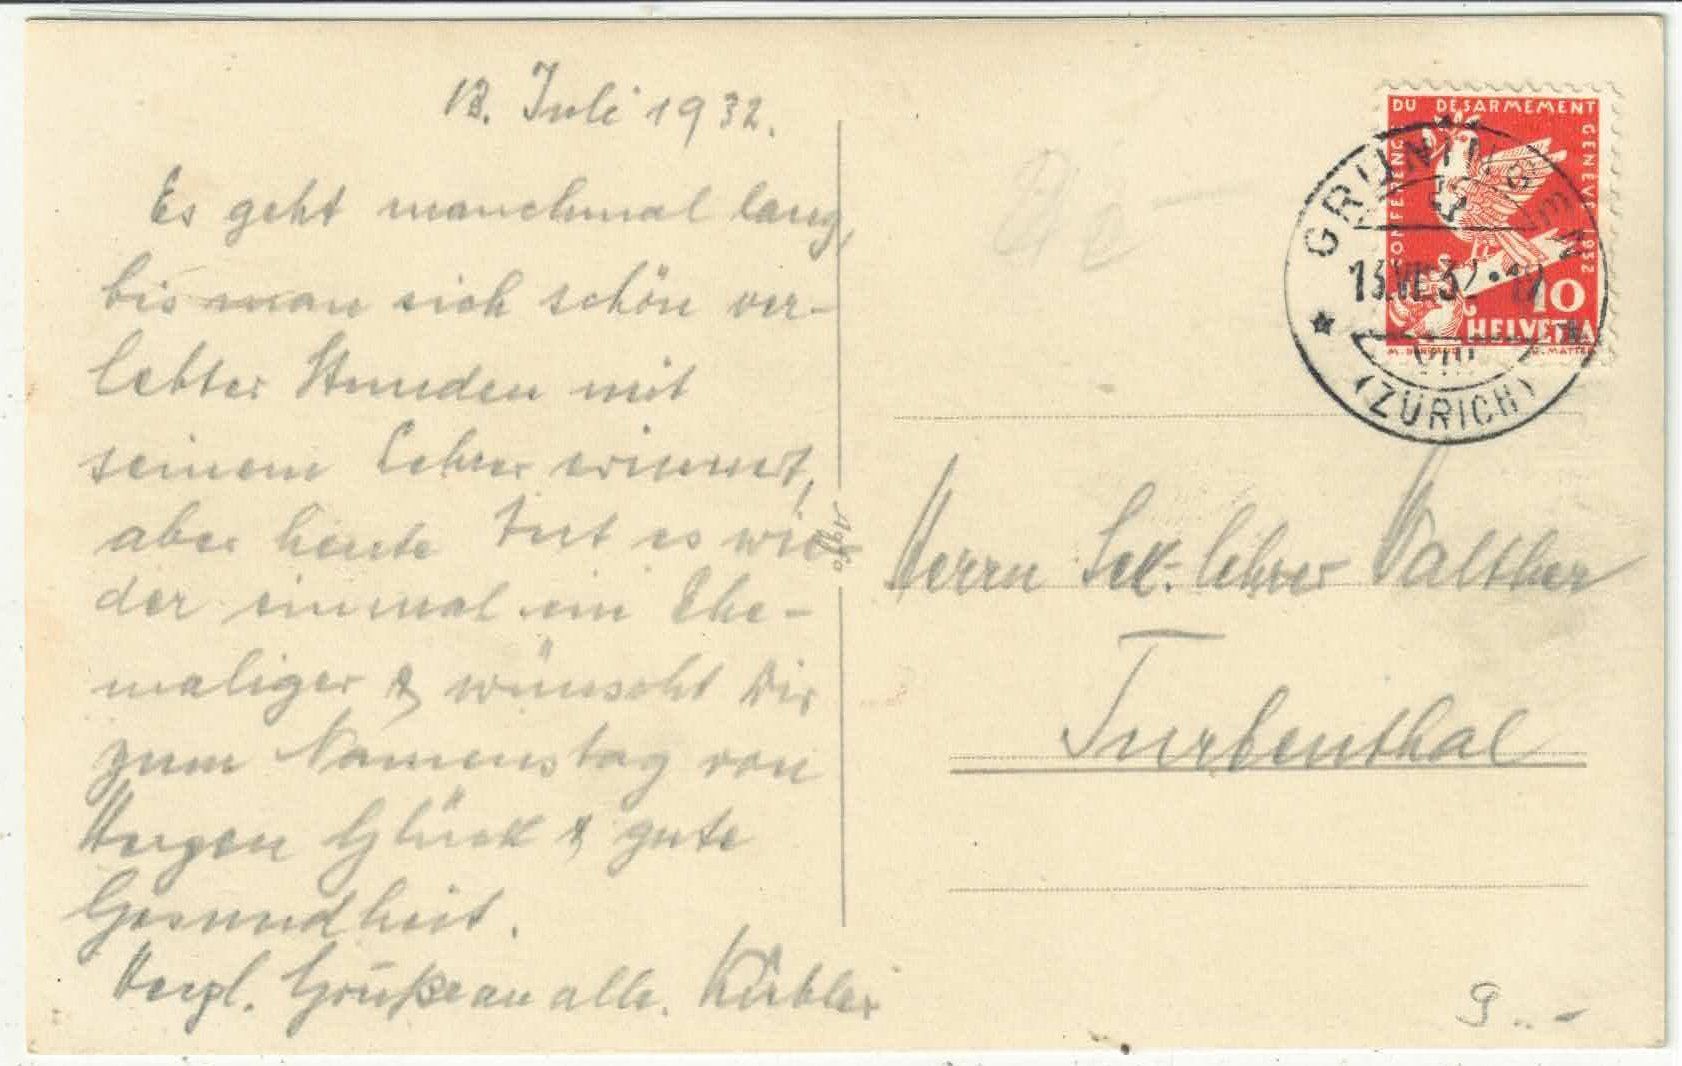 13. Juli 1932.
Es geht manchmal lang,
bis man sich schön ver-
lebter Stunden mit
seinem Lehrer erinnert,
aber heute tut es wie-
der einmal ein Ehe-
maliger & wünscht Dir
zum Namenstag von
Herzen Glück & gute
Gesundheit.
Herzl. Grüße an alle. Kübler
CONFERENCE DU DESARMEMENT GENEVE 1932
10
HELVETIA
GRÜNINGEN
13.VII.32
VIII
(ZÜRICH)
Herrn Sek.-lehrer Walther
Turbenthal
9.-